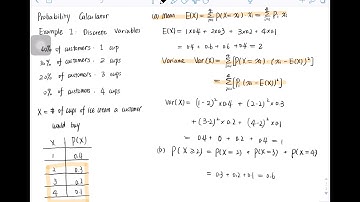 Probability Calculator
Example 1: Discrete Variables
40% of customers: 1 cups
30% of customers: 2 cups
20% of customers: 3 cups
10% of customers: 4 cups
X = # of cups of ice cream a customer
would buy
X P(X)
1 0.4
2 0.3
3 0.2
4 0.1
(a) Mean E(X) = Σ P(X=xi) · xi = Σ Pi xi
E(X) = 1×0.4 + 2×0.3 + 3×0.2 + 4×0.1
= 0.4 + 0.6 + 0.6 + 0.4 = 2
Variance Var(X) = Σ [P(X=xi) · (xi - E(X))²]
= Σ [Pi (xi - E(X))²]
Var(X) = (1-2)² × 0.4 + (2-2)² × 0.3
+ (3-2)² × 0.2 + (4-2)² × 0.1
= 0.4 + 0 + 0.2 + 0.4 = 1
(b) P(X≥2) = P(X=2) + P(X=3) + P(X=4)
= 0.3 + 0.2 + 0.1 = 0.6